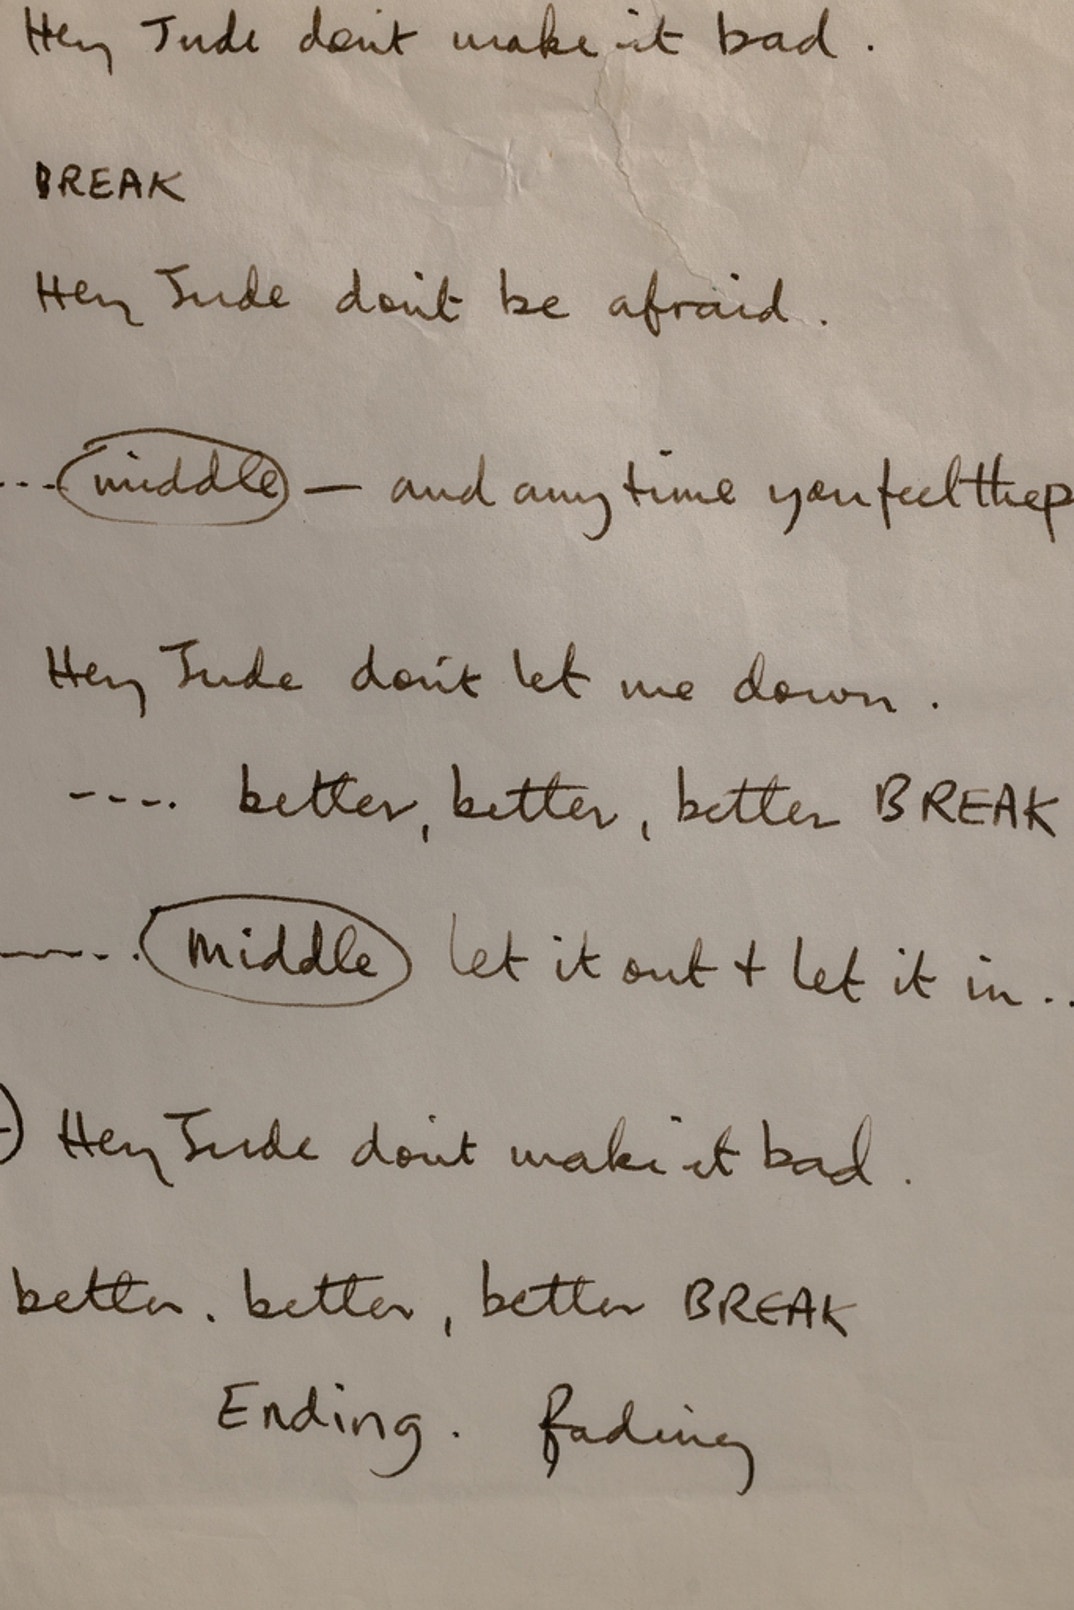 Hey Jude don't make it bad.
BREAK
Hey Jude don't be afraid.
... middle — and any time you feel the p
Hey Jude don't let me down.
---. better, better, better BREAK
---. Middle let it out + let it in..
) Hey Jude don't make it bad.
better. better, better BREAK
Ending. fading